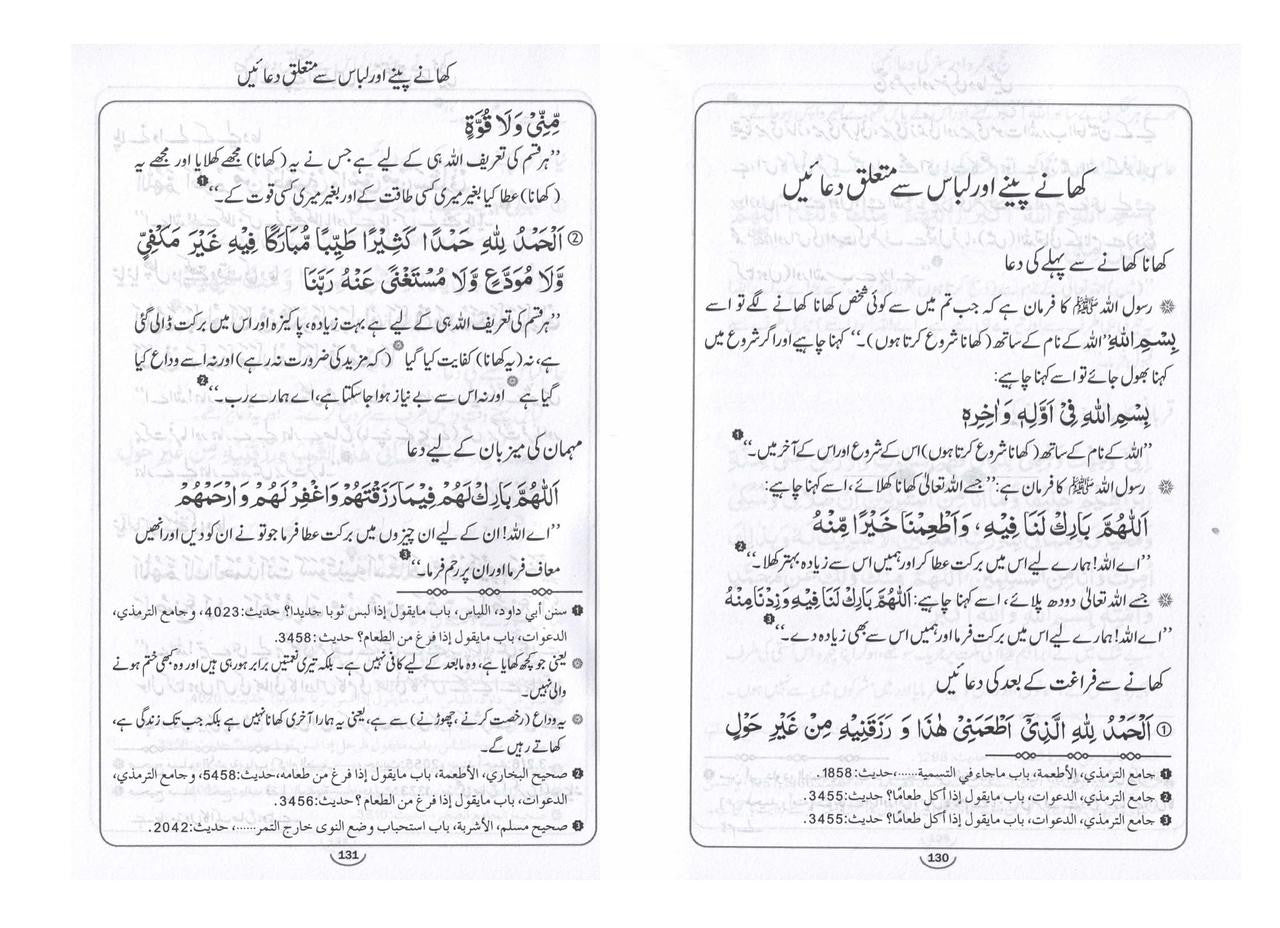 کھانے پینے اور لباس سے متعلق دعائیں
کھانا کھانے سے پہلے کی دعا
رسول اللہ ﷺ کا فرمان ہے کہ جب تم میں سے کوئی شخص کھانا کھانے لگے تو اسے
بِسْمِ اللهِ ”اللہ کے نام کے ساتھ (کھانا شروع کرتا ہوں)۔“ کہنا چاہیے اور اگر شروع میں
کہنا بھول جائے تو اسے کہنا چاہیے:
بِسْمِ اللهِ فِيْ اَوَّلِهٖ وَاٰخِرِهٖ
”اللہ کے نام کے ساتھ (کھانا شروع کرتا ہوں) اس کے شروع اور اس کے آخر میں۔“ ❶
رسول اللہ ﷺ کا فرمان ہے: ”جسے اللہ تعالیٰ کھانا کھلائے، اسے کہنا چاہیے:
اَللّٰهُمَّ بَارِكْ لَنَا فِيْهِ، وَاَطْعِمْنَا خَيْرًا مِّنْهُ
”اے اللہ! ہمارے لیے اس میں برکت عطا کر اور ہمیں اس سے زیادہ بہتر کھلا۔“ ❷
جسے اللہ تعالیٰ دودھ پلائے، اسے کہنا چاہیے: اَللّٰهُمَّ بَارِكْ لَنَا فِيْهِ وَزِدْنَا مِنْهُ
”اے اللہ! ہمارے لیے اس میں برکت فرما اور ہمیں اس سے بھی زیادہ دے۔“ ❸
کھانے سے فراغت کے بعد کی دعائیں
① اَلْحَمْدُ لِلّٰهِ الَّذِيْٓ اَطْعَمَنِيْ هٰذَا وَ رَزَقَنِيْهِ مِنْ غَيْرِ حَوْلٍ
❶ جامع الترمذي، الأطعمة، باب ماجاء في التسمية.....، حديث:1858.
❷ جامع الترمذي، الدعوات، باب مايقول إذا أكل طعامًا؟ حديث:3455.
❸ جامع الترمذي، الدعوات، باب مايقول إذا أكل طعامًا؟ حديث:3455.
130
کھانے پینے اور لباس سے متعلق دعائیں
مِّنِّيْ وَلَا قُوَّةٍ
”ہر قسم کی تعریف اللہ ہی کے لیے ہے جس نے یہ (کھانا) مجھے کھلایا اور مجھے یہ
(کھانا) عطا کیا بغیر میری کسی طاقت کے اور بغیر میری کسی قوت کے۔“ ❶
② اَلْحَمْدُ لِلّٰهِ حَمْدًا كَثِيْرًا طَيِّبًا مُّبَارَكًا فِيْهِ غَيْرَ مَكْفِيٍّ
وَّلَا مُوَدَّعٍ وَّلَا مُسْتَغْنًى عَنْهُ رَبَّنَا
”ہر قسم کی تعریف اللہ ہی کے لیے ہے بہت زیادہ، پاکیزہ اور اس میں برکت ڈالی گئی
ہے، نہ (یہ کھانا) کفایت کیا گیا (کہ مزید کی ضرورت نہ رہے) اور نہ اسے وداع کیا
گیا ہے اور نہ اس سے بے نیاز ہوا جا سکتا ہے، اے ہمارے رب۔“ ❷
مہمان کی میزبان کے لیے دعا
اَللّٰهُمَّ بَارِكْ لَهُمْ فِيْمَا رَزَقْتَهُمْ وَاغْفِرْ لَهُمْ وَارْحَمْهُمْ
”اے اللہ! ان کے لیے ان چیزوں میں برکت عطا فرما جو تو نے ان کو دیں اور انھیں
معاف فرما اور ان پر رحم فرما۔“ ❸
❶ سنن أبي داود، اللباس، باب مايقول إذا لبس ثوبا جديدا؟ حديث:4023، وجامع الترمذي،
الدعوات، باب مايقول إذا فرغ من الطعام؟ حديث:3458.
یعنی جو کچھ کھایا ہے، وہ مابعد کے لیے کافی نہیں ہے۔ بلکہ تیری نعمتیں برابر ہو رہی ہیں اور وہ کبھی ختم ہونے
والی نہیں۔
یہ وداع (رخصت کرنے، چھوڑنے) سے ہے، یعنی یہ ہمارا آخری کھانا نہیں ہے بلکہ جب تک زندگی ہے،
کھاتے رہیں گے۔
❷ صحيح البخاري، الأطعمة، باب مايقول إذا فرغ من طعامه، حديث:5458، وجامع الترمذي،
الدعوات، باب مايقول إذا فرغ من الطعام؟ حديث:3456.
❸ صحيح مسلم، الأشربة، باب استحباب وضع النوى خارج التمر.....، حديث:2042.
131